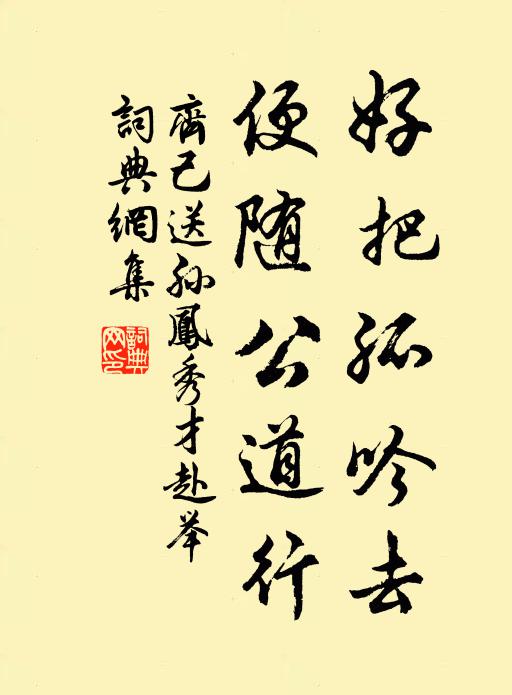 好把孤吟去
便随公道行
齊己送孙鳳秀才赴举
詞典網集
詞典
网印